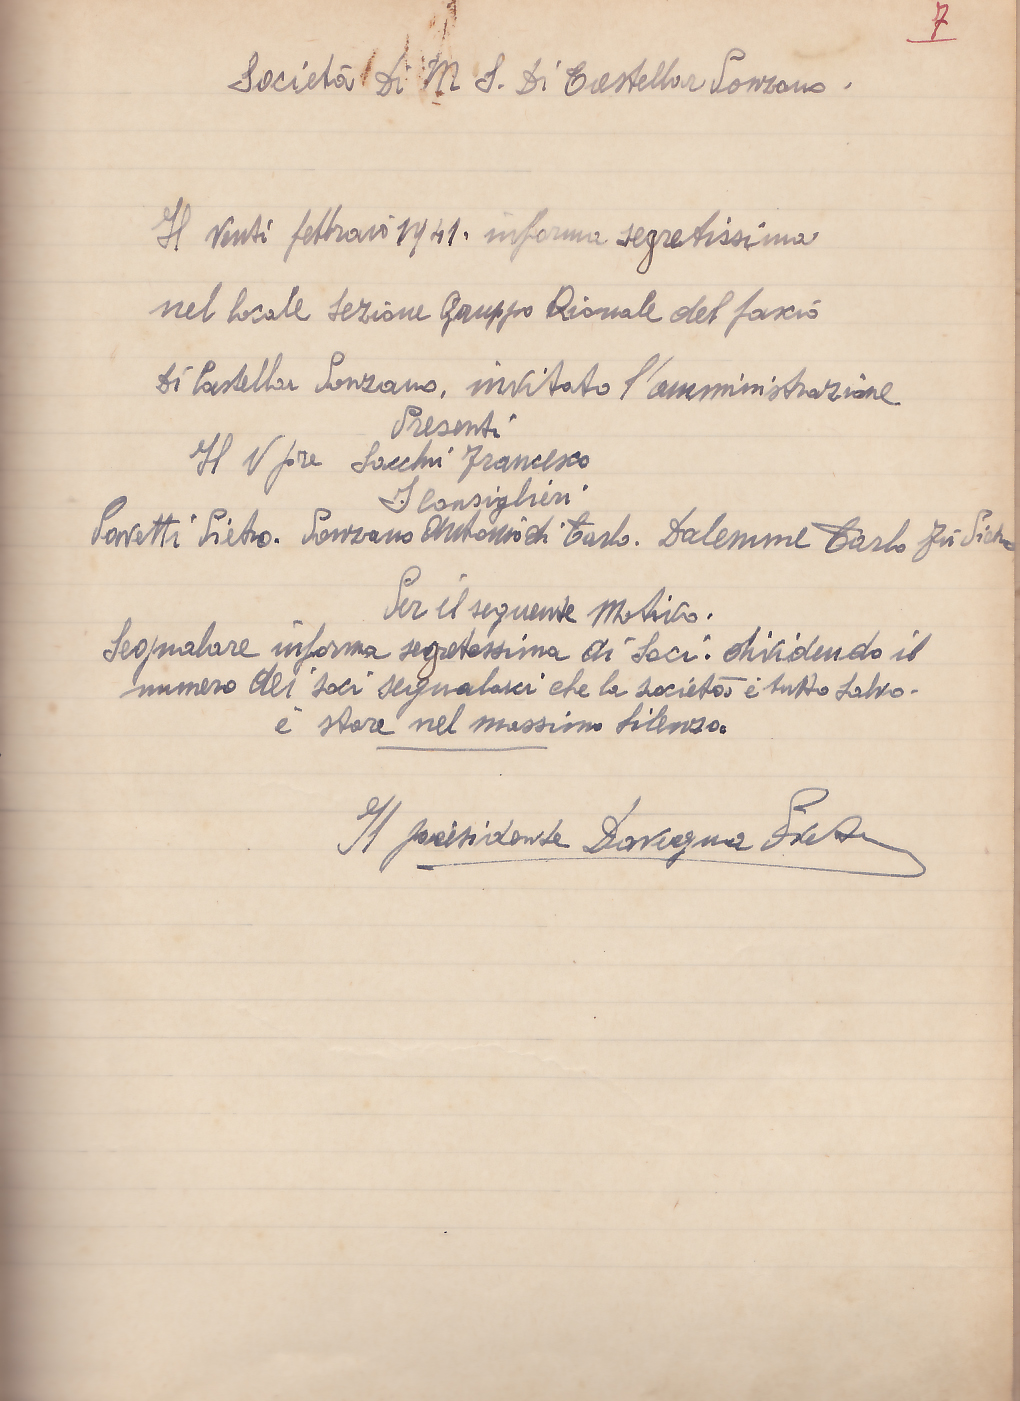 7
Società Di M S. Di Castellar Ponzano.
Il Venti febbraio 1941. informa segretissima
nel locale Sezione Gruppo Rionale del fascio
Di Castellar Ponzano, invitato l'amministrazione
Presenti
Il V pre Sacchi Francesco
I Consiglieri
Pietro. Ponzano Antonio di Carlo. Dalemme Carlo Fù Pietro
Per il seguente Motivo.
Segnalare informa segretessima di Soci. dividendo il
numero Dei soci segnalarci che la società è tutto salvo.
è stare nel massimo silenzo.
Il presidente